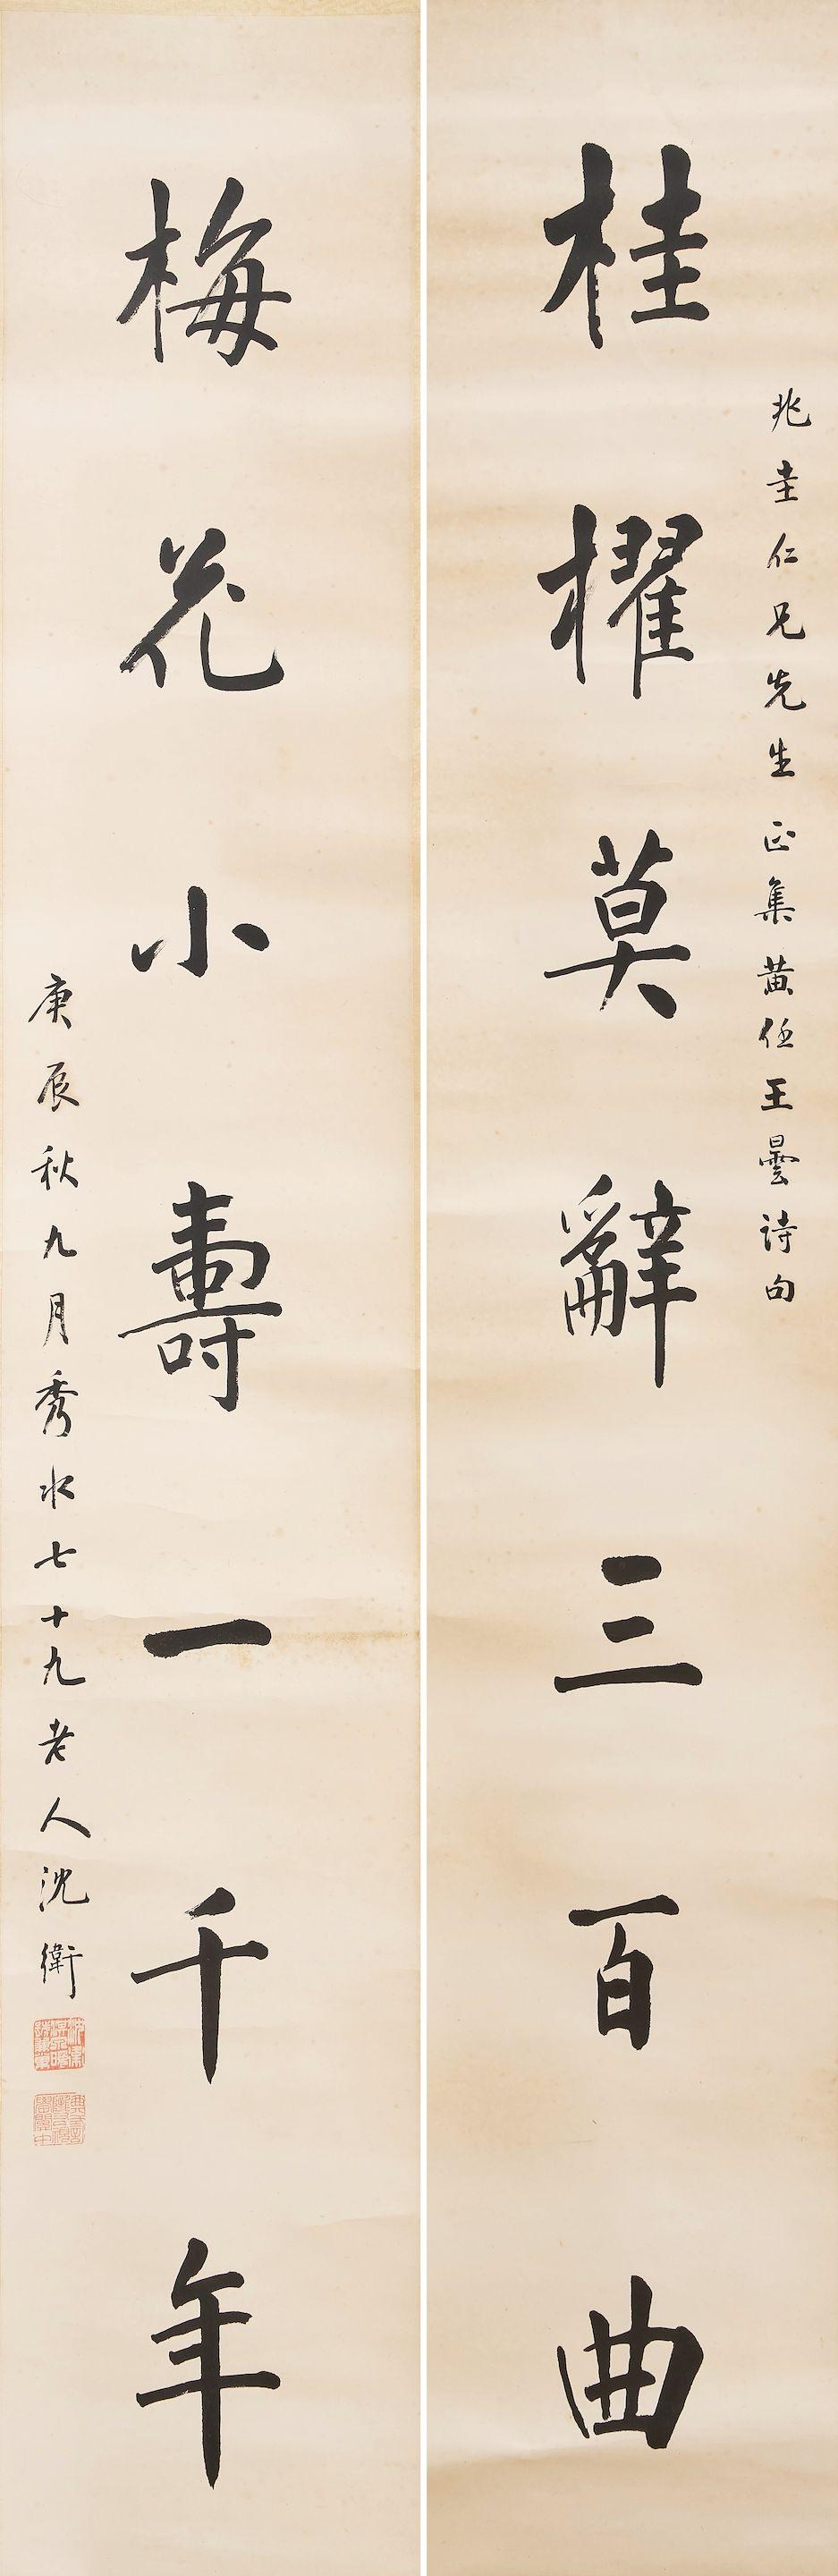 兆圭仁兄先生正集黃任王曇詩句
桂櫂莫辭三百曲
梅花小壽一千年
庚辰秋九月秀水七十九老人沈衛